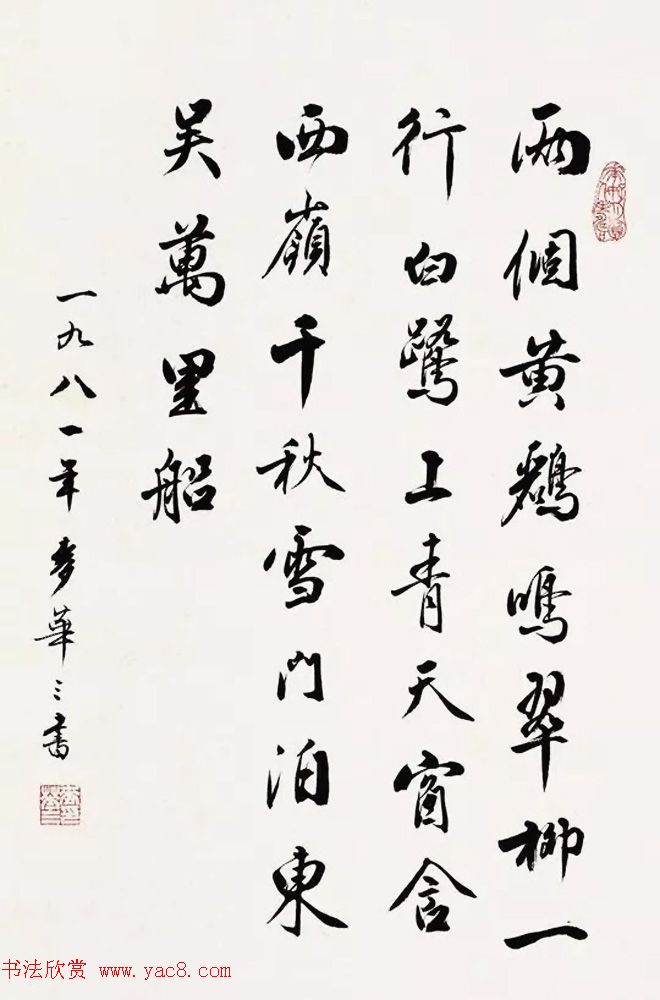 兩個黃鸝鳴翠柳一
行白鷺上青天窗含
西嶺千秋雪門泊東
吴萬里船
一九八一年麥華三書
书法欣赏 www.yac8.com